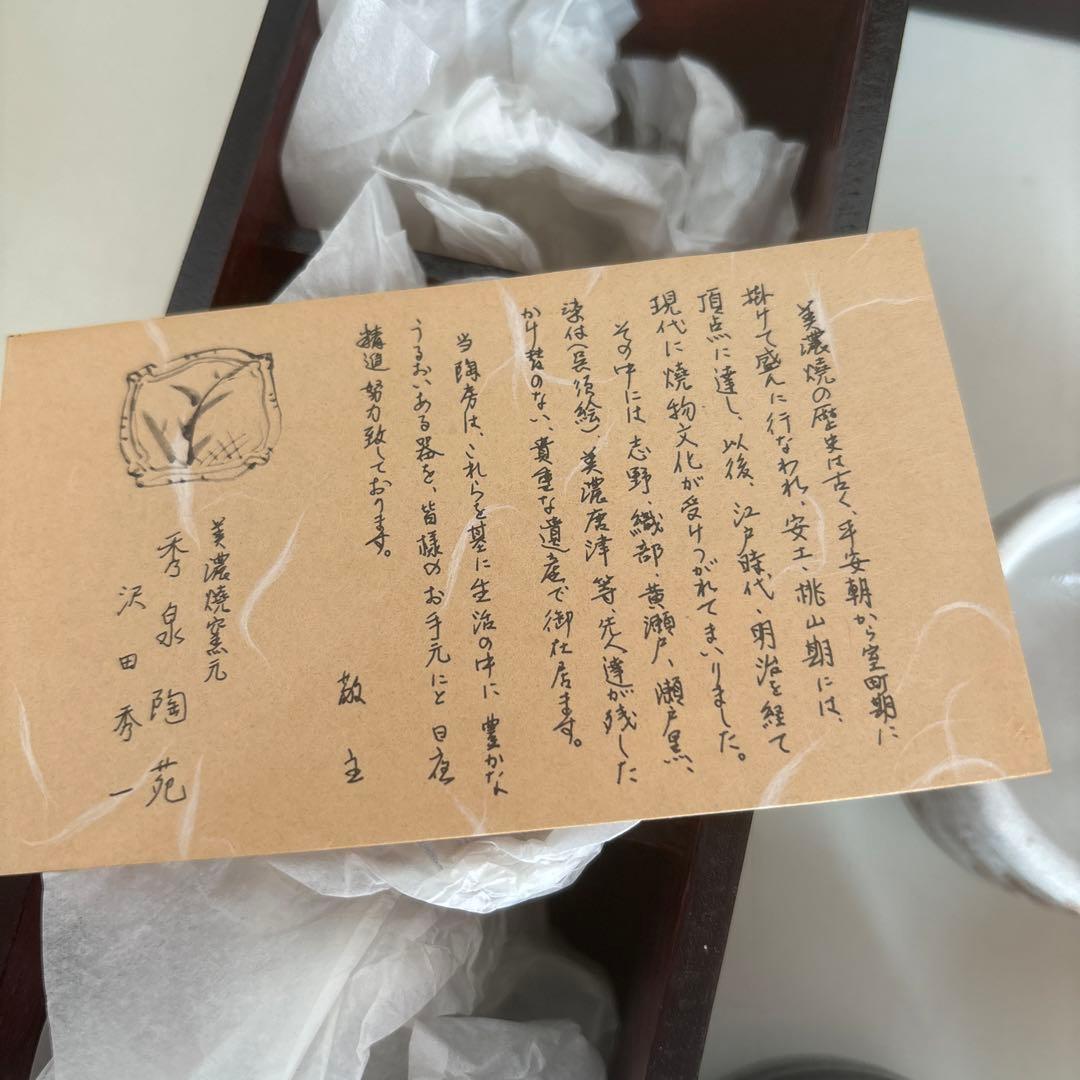 美濃焼の歴史は古く、平安朝から室町期に
掛けて盛んに行なわれ、安土、桃山期には、
頂点に達し、以後、江戸時代、明治を経て
現代に焼物文化が受けつがれてまいりました。
その中には志野、織部、黄瀬戸、瀬戸黒、
染付(呉須絵)、美濃唐津等、先人達が残した
かけ替のない、貴重な遺産で御座居ます。
当陶房は、これらを基に生活の中に豊かな
うるおいある器を、皆様のお手元にと日夜
精進努力致しております。
敬主
美濃焼窯元
秀泉陶苑
沢田秀一